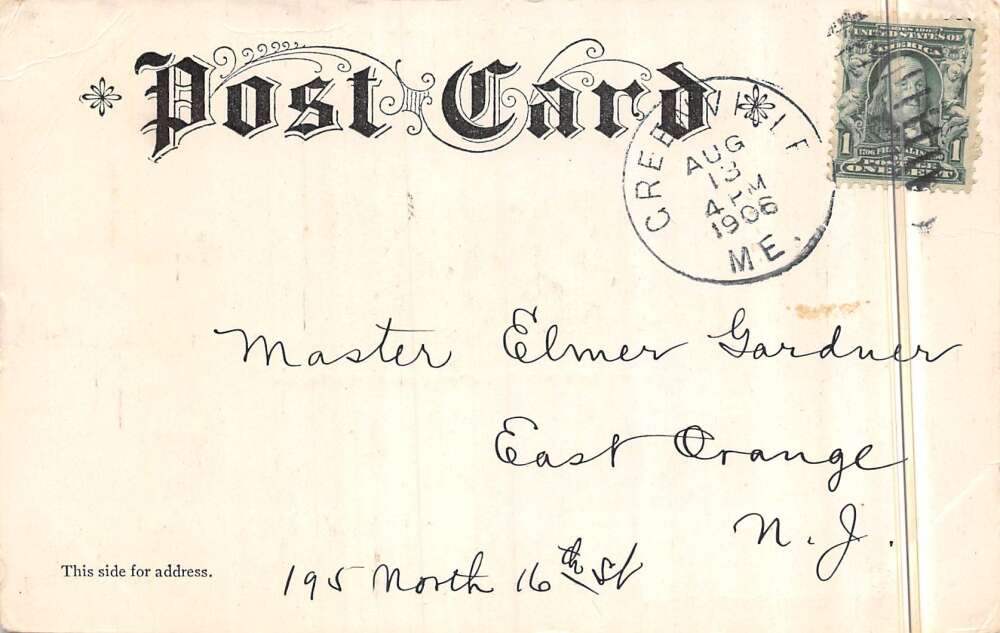 Post Card
GREENVILLE
AUG
13
4 PM
1906
ME.
UNITED STATES OF
AMERICA
1 FRANKLIN 1
POSTAGE
ONE CENT
Master Elmer Gardner
East Orange
N. J.
195 North 16th St
This side for address.